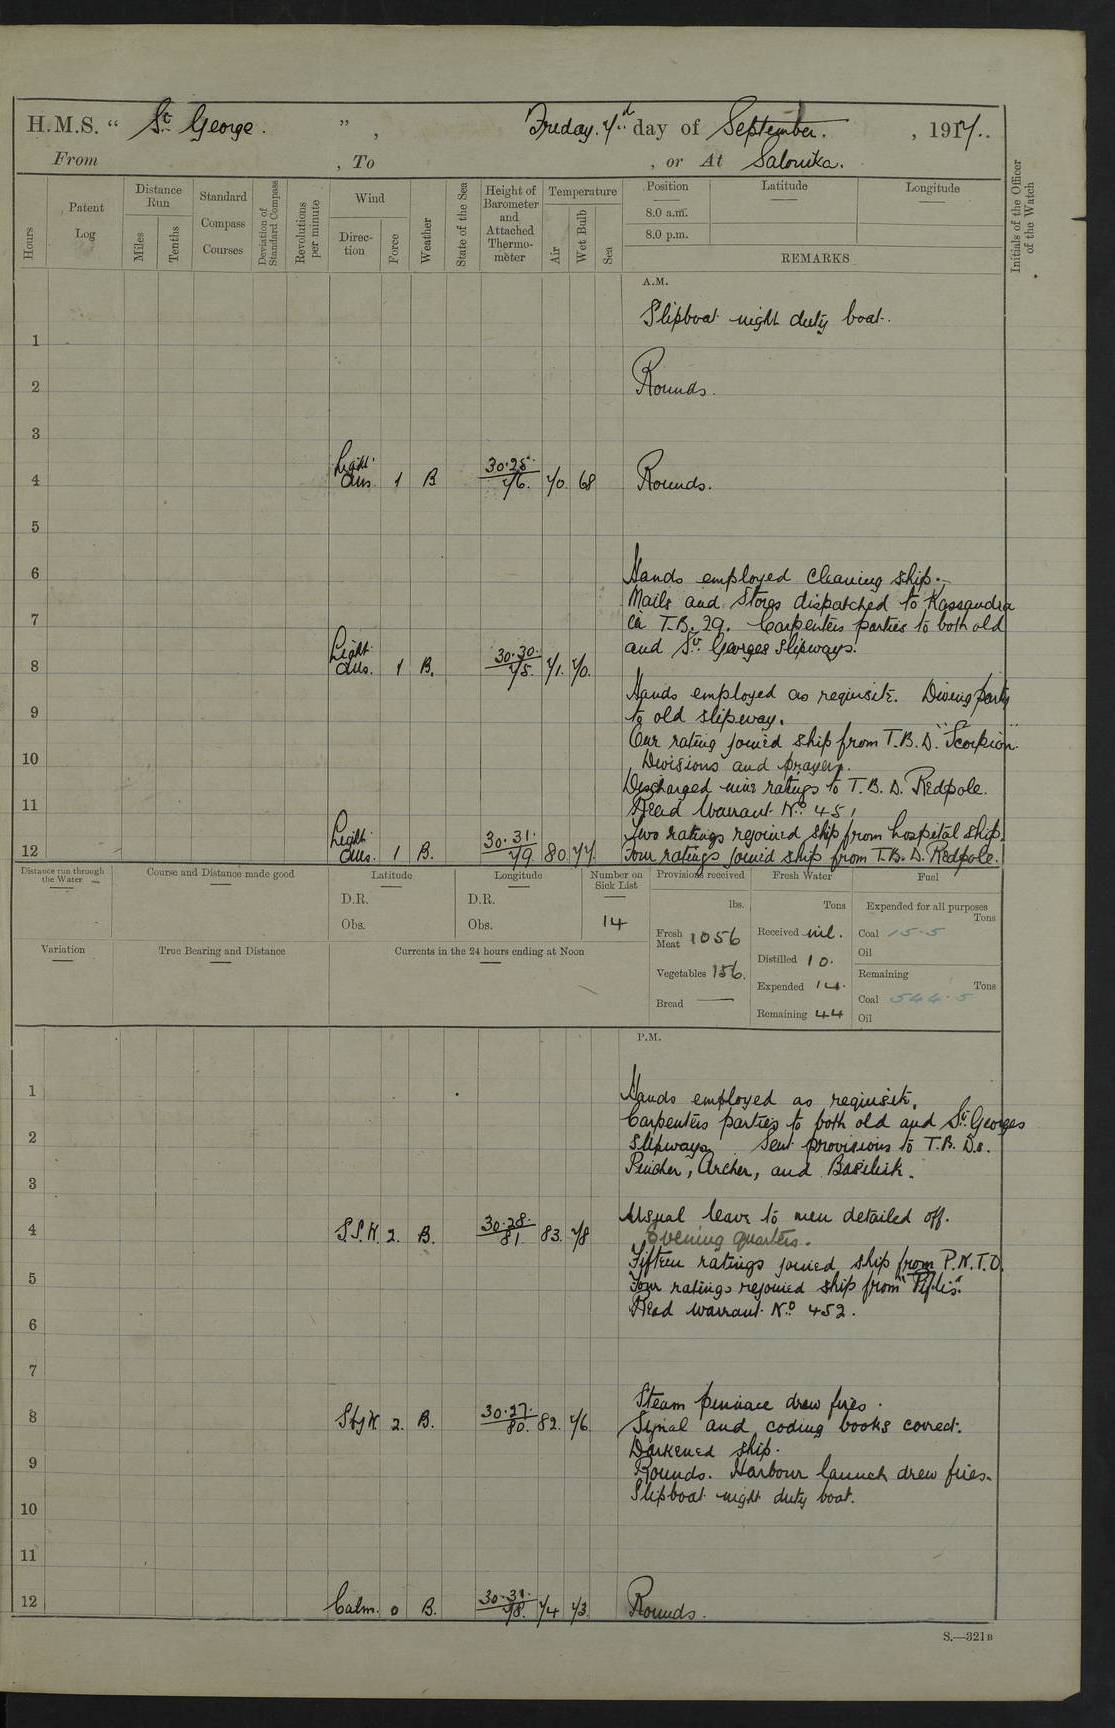 H.M.S. " St George. ", Friday. 7th day of September. , 1917..
From , To , or At Salonika.
Hours
Patent Log
Distance Run
Miles
Tenths
Standard Compass Courses
Deviation of Standard Compass
Revolutions per minute
Wind
Direction
Force
Weather
State of the Sea
Height of Barometer and Attached Thermometer
Temperature
Air
Wet Bulb
Sea
Position
8.0 a.m.
8.0 p.m.
Latitude
Longitude
REMARKS
Initials of the Officer of the Watch
A.M.
Slipboat night duty boat.
1
2 Rounds.
3
4 Light airs 1 B 30.28 76. 70. 68 Rounds.
5
6 Hands employed cleaning ship.
Mails and Stores dispatched to Kassandra
7 in T.B. 29. Carpenters parties to both old
and St Georges slipways.
8 Light airs. 1 B. 30.30. 75. 71. 70.
Hands employed as requisite. Diving party
9 to old slipway.
One rating joined ship from T.B.D. "Scorpion"
10 Divisions and prayers.
Discharged nine ratings to T.B.D. Redpole.
11 Read Warrant No. 451
Two ratings rejoined ship from hospital ship.
12 Light airs. 1 B. 30.31. 79. 80 77. Four ratings joined ship from T.B.D. Redpole.
Distance run through the Water
Course and Distance made good
Latitude
D.R.
Obs.
Longitude
D.R.
Obs.
Number on Sick List
14
Provisions received
lbs.
Fresh Meat 1056
Vegetables 156.
Bread —
Fresh Water
Tons
Received nil.
Distilled 10.
Expended 14.
Remaining 44
Fuel
Expended for all purposes
Tons
Coal 15.5
Oil
Remaining
Tons
Coal 544.5
Oil
Variation
True Bearing and Distance
Currents in the 24 hours ending at Noon
P.M.
1 Hands employed as requisite.
Carpenters parties to both old and St Georges
2 slipways. Sent provisions to T.B.Ds.
Pincher, Archer, and Basilisk.
3
4 Usual leave to men detailed off.
S.S.W. 2. B. 30.28. 81. 83. 78 Evening quarters.
Fifteen ratings joined ship from P.N.T.O.
5 Four ratings rejoined ship from
Read warrant No. 452.
6
7
Steam pinnace drew fires.
8 SbyW. 2. B. 30.27. 80. 82. 76. Signal and coding books correct.
Darkened ship.
9 Rounds. Harbour launch drew fires.
Slipboat night duty boat.
10
11
12 Calm. 0 B. 30.31. 78. 74 73. Rounds.
S.—321B